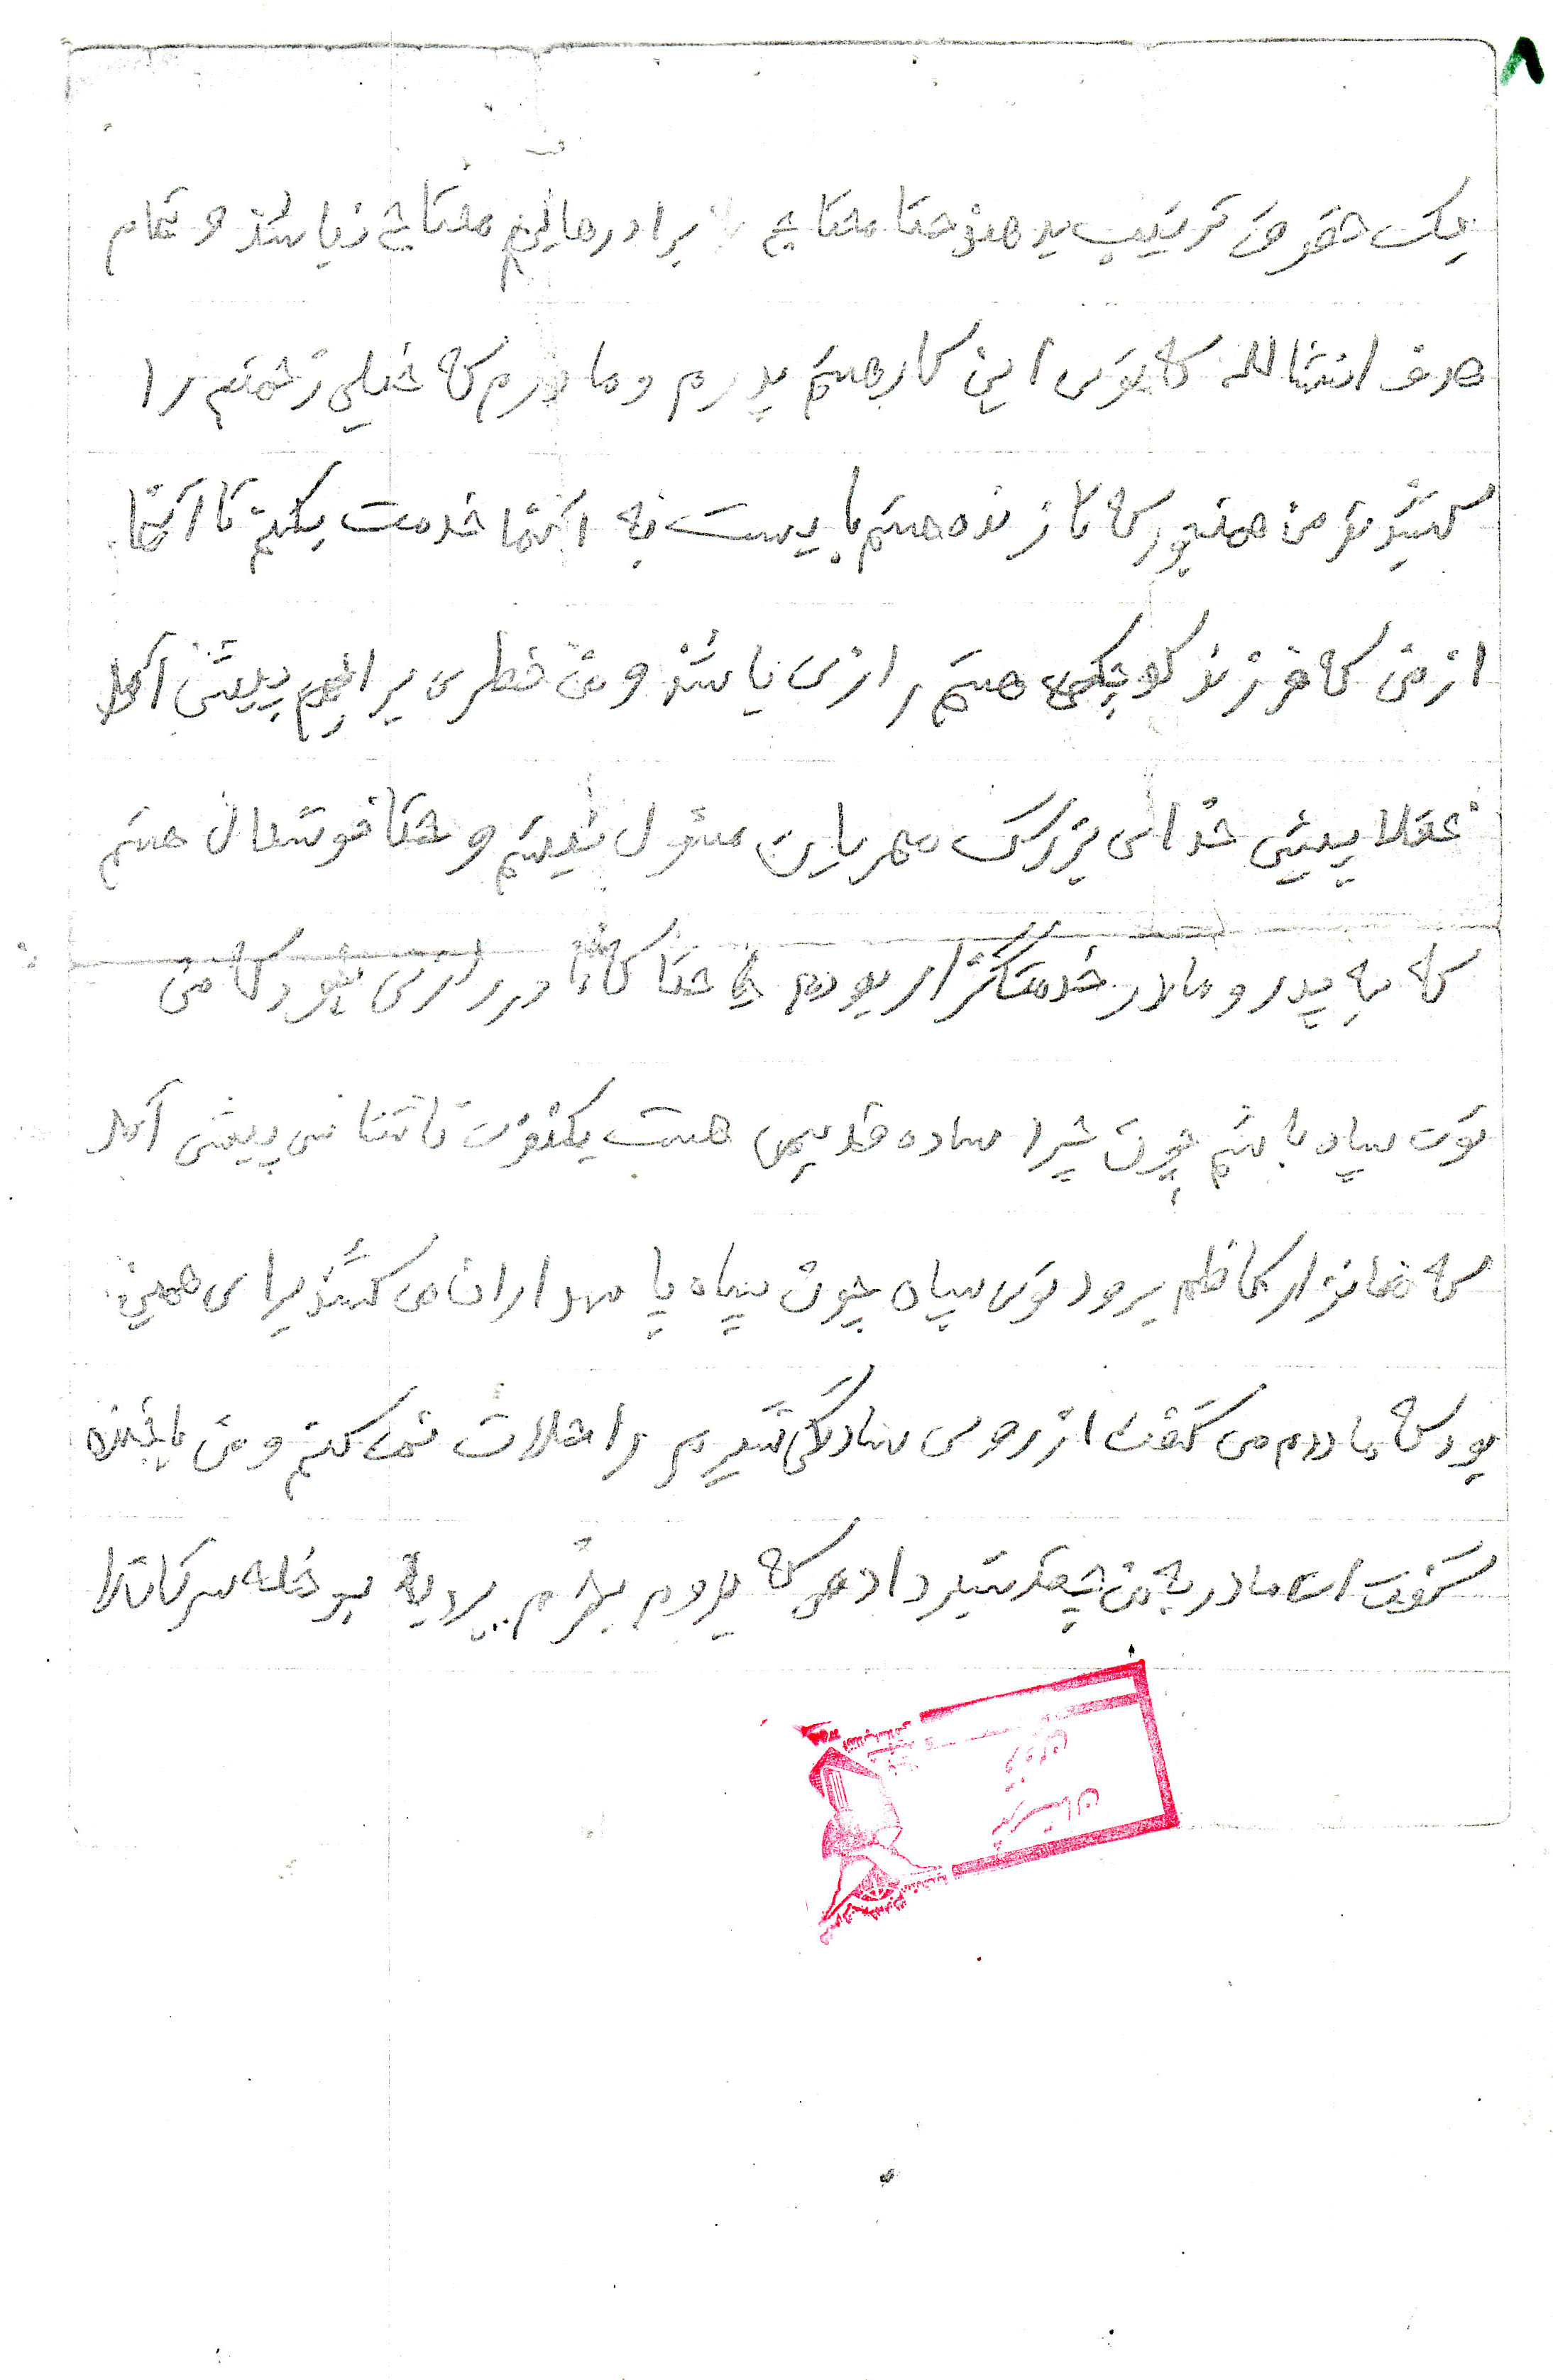 ۸
یک حقوق ترتیب بدهند حتا محتاج برادرهایم محتاج نباشند و تمام
هدف انشالله که توی این کار هستم پدرم و مادرم که خیلی زحمتم را
کشیدند من همنجور که تا زنده هستم بایست به آنها خدمت بکنم تا آنها
از من که فرزند کوچکی هستم رازی باشند و من خطری برایم پیش آمد
عقلا پیش خدای بزرگ مهربان مسئول نیستم و حتا خوشحال هستم
که به پدر و مادر خدمتگزار بودم حتا که مادر رازی نبود که من
توی سپاه باشم چون شیرا ساده قدیمی هست یکنفری ناشناس پیش آمد
که نگذار کاظم برود توی سپاه چون سپاه پاسداران می کشند برای همین
بود که مادرم می گفت از روی سادگی شیرم را حلالت نمی کنم و من با خنده
گفت ای مادر به من چقدر شیر دادی که بروم بخرم برایت